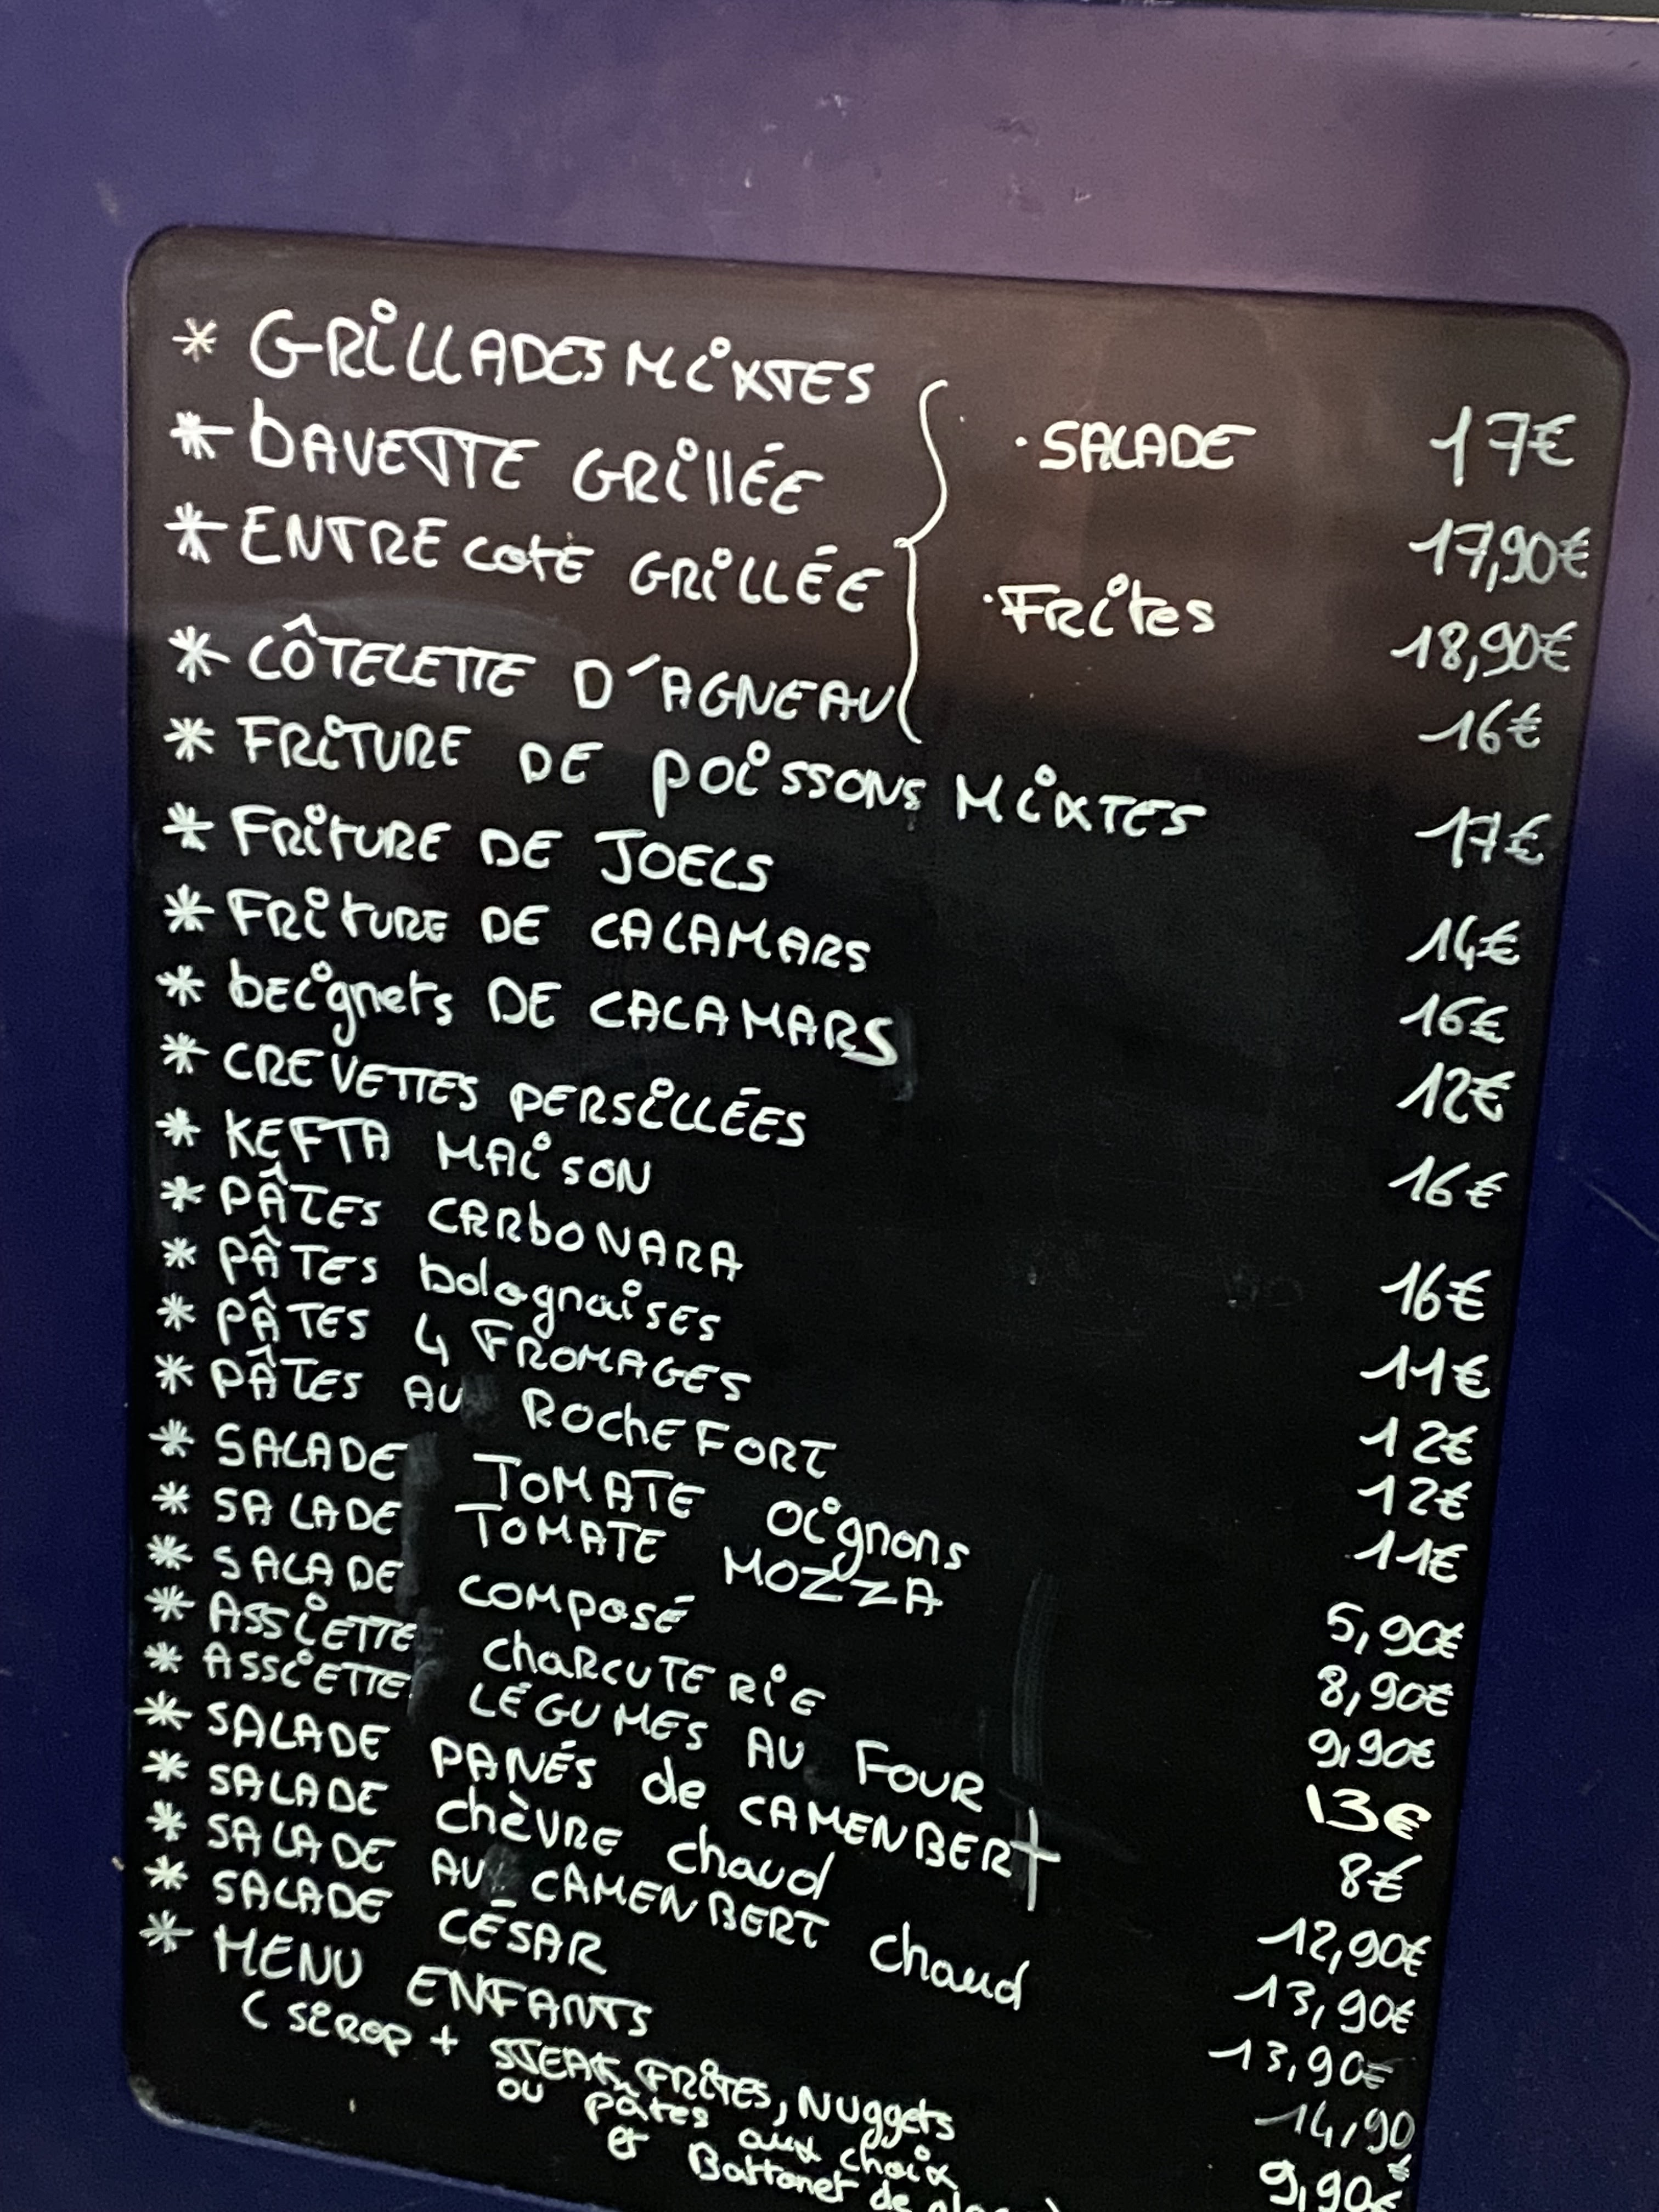 * GRILLADES MIXTES 17€
* BAVETTE GRILLÉE · SALADE 17,90€
* ENTRE COTE GRILLÉE · Frites 18,90€
* CÔTELETTE D'AGNEAU 16€
* FRITURE DE POISSONS MIXTES 17€
* FRITURE DE JOELS 14€
* FRITURE DE CALAMARS 16€
* beignets DE CALAMARS 12€
* CREVETTES PERSILLÉES 16€
* KEFTA MAISON 16€
* PÂTES CARBONARA 11€
* PÂTES bolognaises 12€
* PÂTES 4 FROMAGES 12€
* PÂTES AU ROCHEFORT 11€
* SALADE TOMATE OIgnons 5,90€
* SALADE TOMATE MOZZA 8,90€
* SALADE COMPOSÉ 9,90€
* ASSIETTE ChARCUTERIE 13€
* ASSIETTE LÉGUMES AU FOUR 8€
* SALADE PANÉS de CAMENBERT 12,90€
* SALADE ChÈVRE chaud 13,90€
* SALADE AU CAMENBERT chaud 13,90€
* SALADE CÉSAR 14,90€
* MENU ENFANTS 9,90€
( SIROP + STEAK, FRITES, NUggets
ou pâtes aux choix
et Battonet de